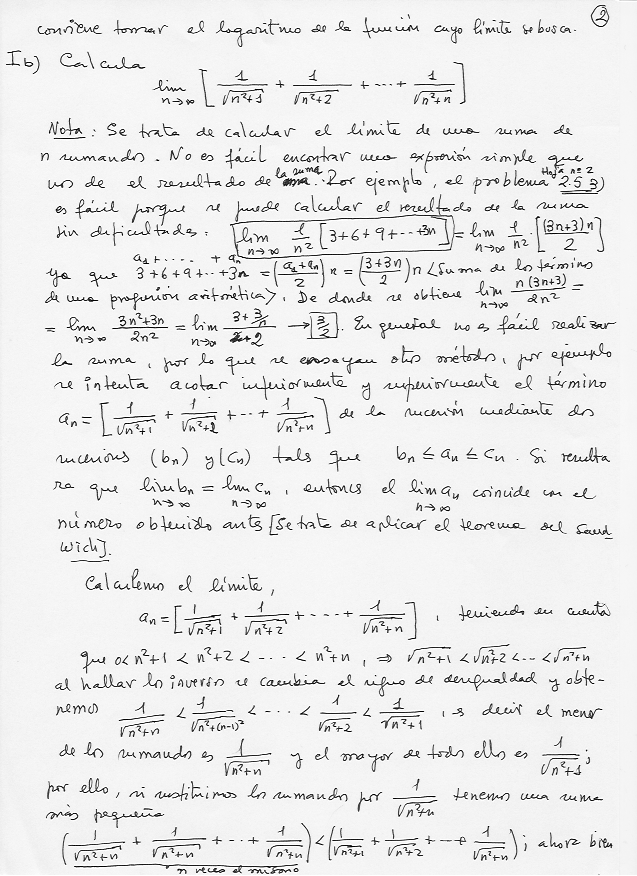 ②
conviene tomar el logaritmo de la función cuyo límite se busca.
I b) Calcula
lim n→∞ [ 1/√(n²+1) + 1/√(n²+2) + ··· + 1/√(n²+n) ]
Nota: Se trata de calcular el límite de una suma de
n sumandos. No es fácil encontrar una expresión simple que
nos de el resultado de la suma. Por ejemplo, el problema Hoja nº 2 2.5 3)
es fácil porque se puede calcular el resultado de la suma
sin dificultades: lim n→∞ 1/n² [3+6+9+···+3n] = lim n→∞ 1/n² · [(3n+3)n / 2]
a₁+ ..... + aₙ
ya que 3+6+9+···+3n = ((a₁+aₙ)/2) n = ((3+3n)/2) n <Suma de los términos
de una progresión aritmética>. De donde se obtiene lim n→∞ n(3n+3)/2n² =
= lim n→∞ (3n²+3n)/2n² = lim n→∞ (3+3/n)/2 → 3/2. En general no es fácil realizar
la suma, por lo que se ensayan otros métodos, por ejemplo
se intenta acotar inferiormente y superiormente el término
aₙ = [ 1/√(n²+1) + 1/√(n²+2) + ··· + 1/√(n²+n) ] de la sucesión mediante dos
sucesiones (bₙ) y (cₙ) tales que bₙ ≤ aₙ ≤ cₙ. Si resulta
ra que lim n→∞ bₙ = lim n→∞ cₙ, entonces el lim n→∞ aₙ coincide con el
número obtenido antes [Se trata de aplicar el teorema del Sand
wich].
Calculemos el límite,
aₙ = [ 1/√(n²+1) + 1/√(n²+2) + ---- + 1/√(n²+n) ], teniendo en cuenta
que 0< n²+1 < n²+2 < ··· < n²+n, ⇒ √(n²+1) < √(n²+2) < ··· < √(n²+n)
al hallar los inversos se cambia el signo de desigualdad y obte-
nemos 1/√(n²+n) < 1/√(n²+(n-1)²) < ··· < 1/√(n²+2) < 1/√(n²+1), es decir el menor
de los sumandos es 1/√(n²+n) y el mayor de todos ellos es 1/√(n²+1);
por ello, si sustituimos los sumandos por 1/√(n²+n) tenemos una suma
más pequeña
( 1/√(n²+n) + 1/√(n²+n) + ··· + 1/√(n²+n) ) < ( 1/√(n²+1) + 1/√(n²+2) + --- + 1/√(n²+n) ); ahora bien
n veces el mismo